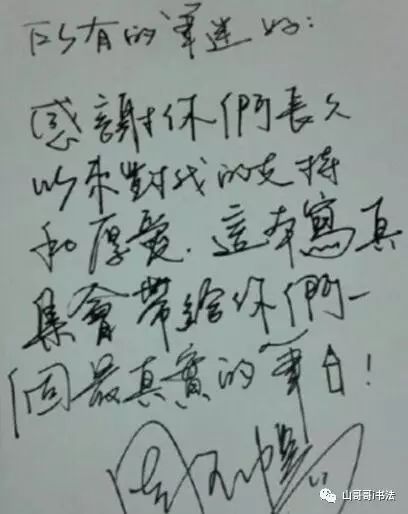 所有的筆迷好:
感謝你們長久
以來對我的支持
和厚愛.這本寫真
集會帶給你們一
個最真實的筆!
山哥哥i书法